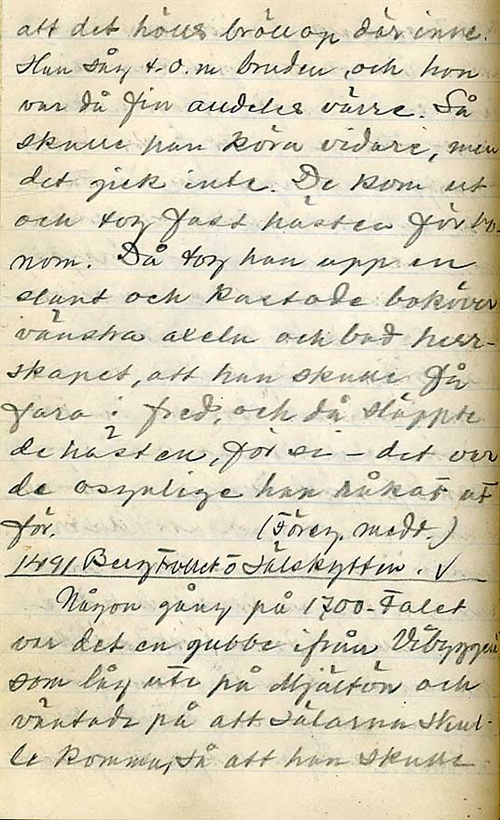 att det hölls bröllop där inne.
Han såg t.o.m bruden, och hon
var då fin alldeles värre. Så
skulle han köra vidare, men
det gick inte. De kom ut
och tog fast hästen för ho-
nom. Då tog han upp en
slant och kastade baköver
vänstra axeln och bad herr-
skapet, att han skulle få
fara i fred, och då släppte
de hästen, för si – det var
de osynlige han råkat ut
för. (Föreg. medd.)
1491 Bergtrollet o Sälskytten. √
Någon gång på 1700-talet
var det en gubbe ifrån Vibyggerå
som låg ute på Mjältön och
väntade på att sälarna skul-
le komma, så att han skulle